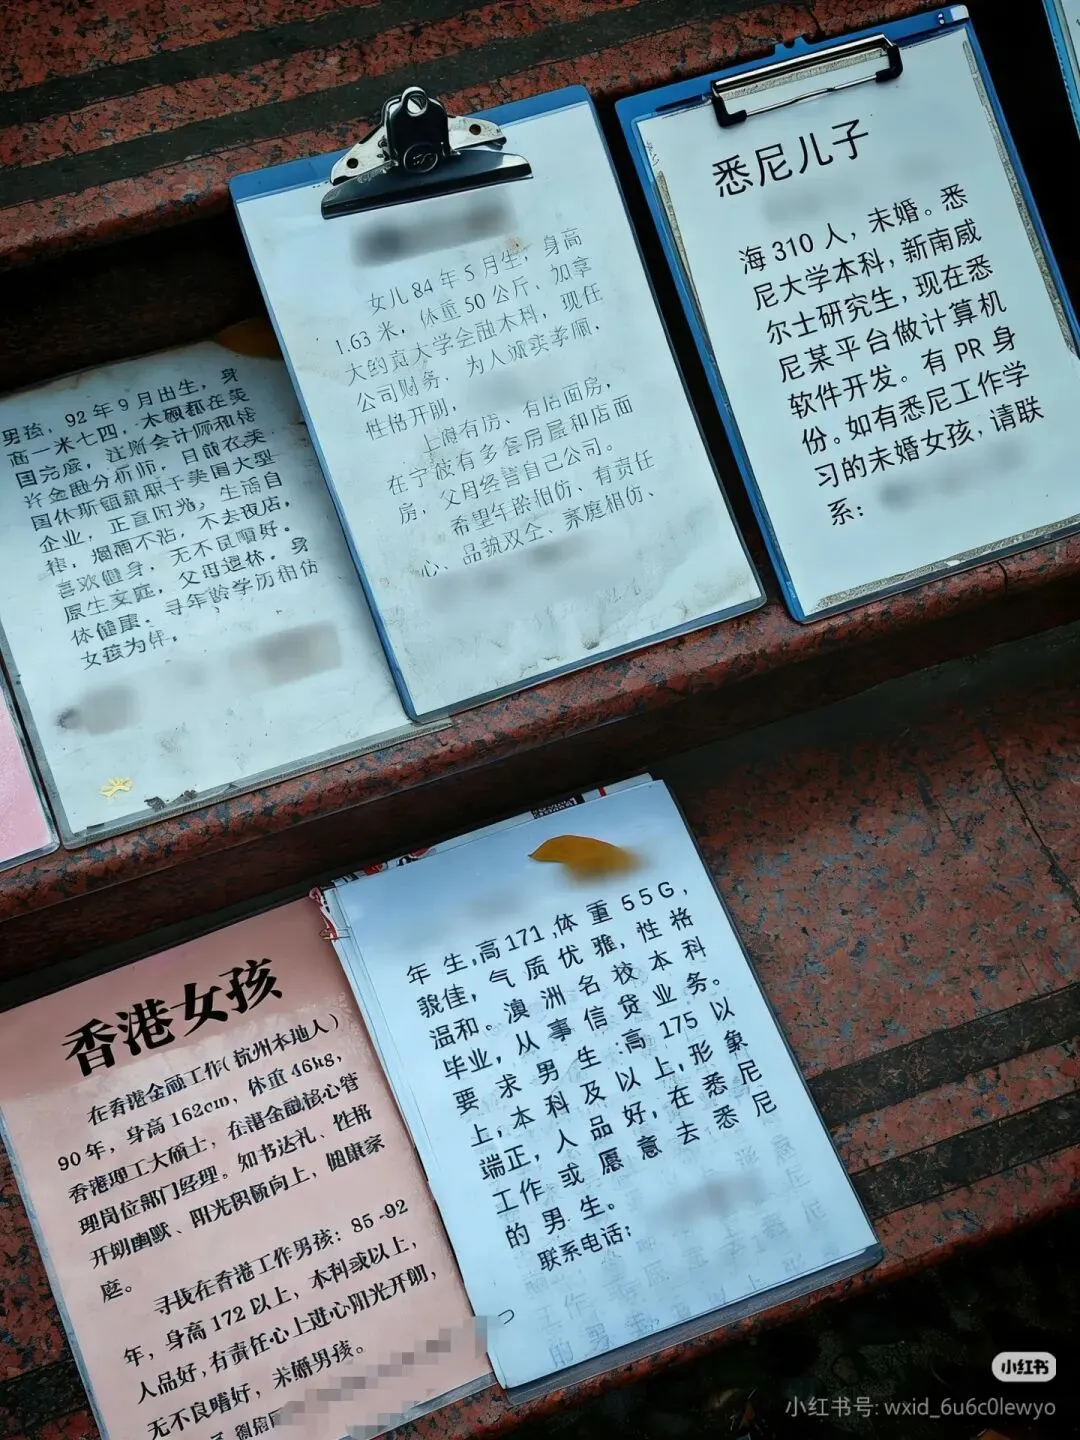 男孩，92年9月出生，身
高一米七四，本硕都在美
国完成，注册会计师和特
许金融分析师，目前在美
国休斯顿就职于美国大型
企业，正直阳光，生活自
律，烟酒不沾，不去夜店，
喜欢健身，无不良嗜好。
原生家庭，父母退休。身
体健康。寻年龄学历相仿
女孩为伴。
女儿84年5月生，身高
1.63米，体重50公斤、加拿
大约克大学金融本科，现任
公司财务、为人诚实孝顺，
性格开朗，
上海有房、有店面房，
在宁波有多套房屋和店面
房，父母经营自己公司。
希望年龄相仿、有责任
心、品貌双全、家庭相仿、
悉尼儿子
海310人，未婚。悉
尼大学本科，新南威
尔士研究生，现在悉
尼某平台做计算机
软件开发。有PR身
份。如有悉尼工作学
习的未婚女孩，请联
系：
香港女孩
在香港金融工作(杭州本地人)
90年，身高162cm，体重46kg，
香港理工大硕士，在港金融核心管
理岗位部门经理。知书达礼、性格
开朗幽默、阳光积极向上，健康家
庭。
寻找在香港工作男孩：85-92
年，身高172以上，本科或以上，
人品好，有责任心上进心阳光开朗，
无不良嗜好，未婚男孩。
微信
年生,高171,体重55G,
貌佳，气质优雅，性格
温和。澳洲名校本科
毕业，从事信贷业务。
要求男生:高175以
上,本科及以上,形象
端正，人品好，在悉尼
工作或愿意去悉尼
的男生。
联系电话；
小红书
小红书号: wxid_6u6c0lewyo